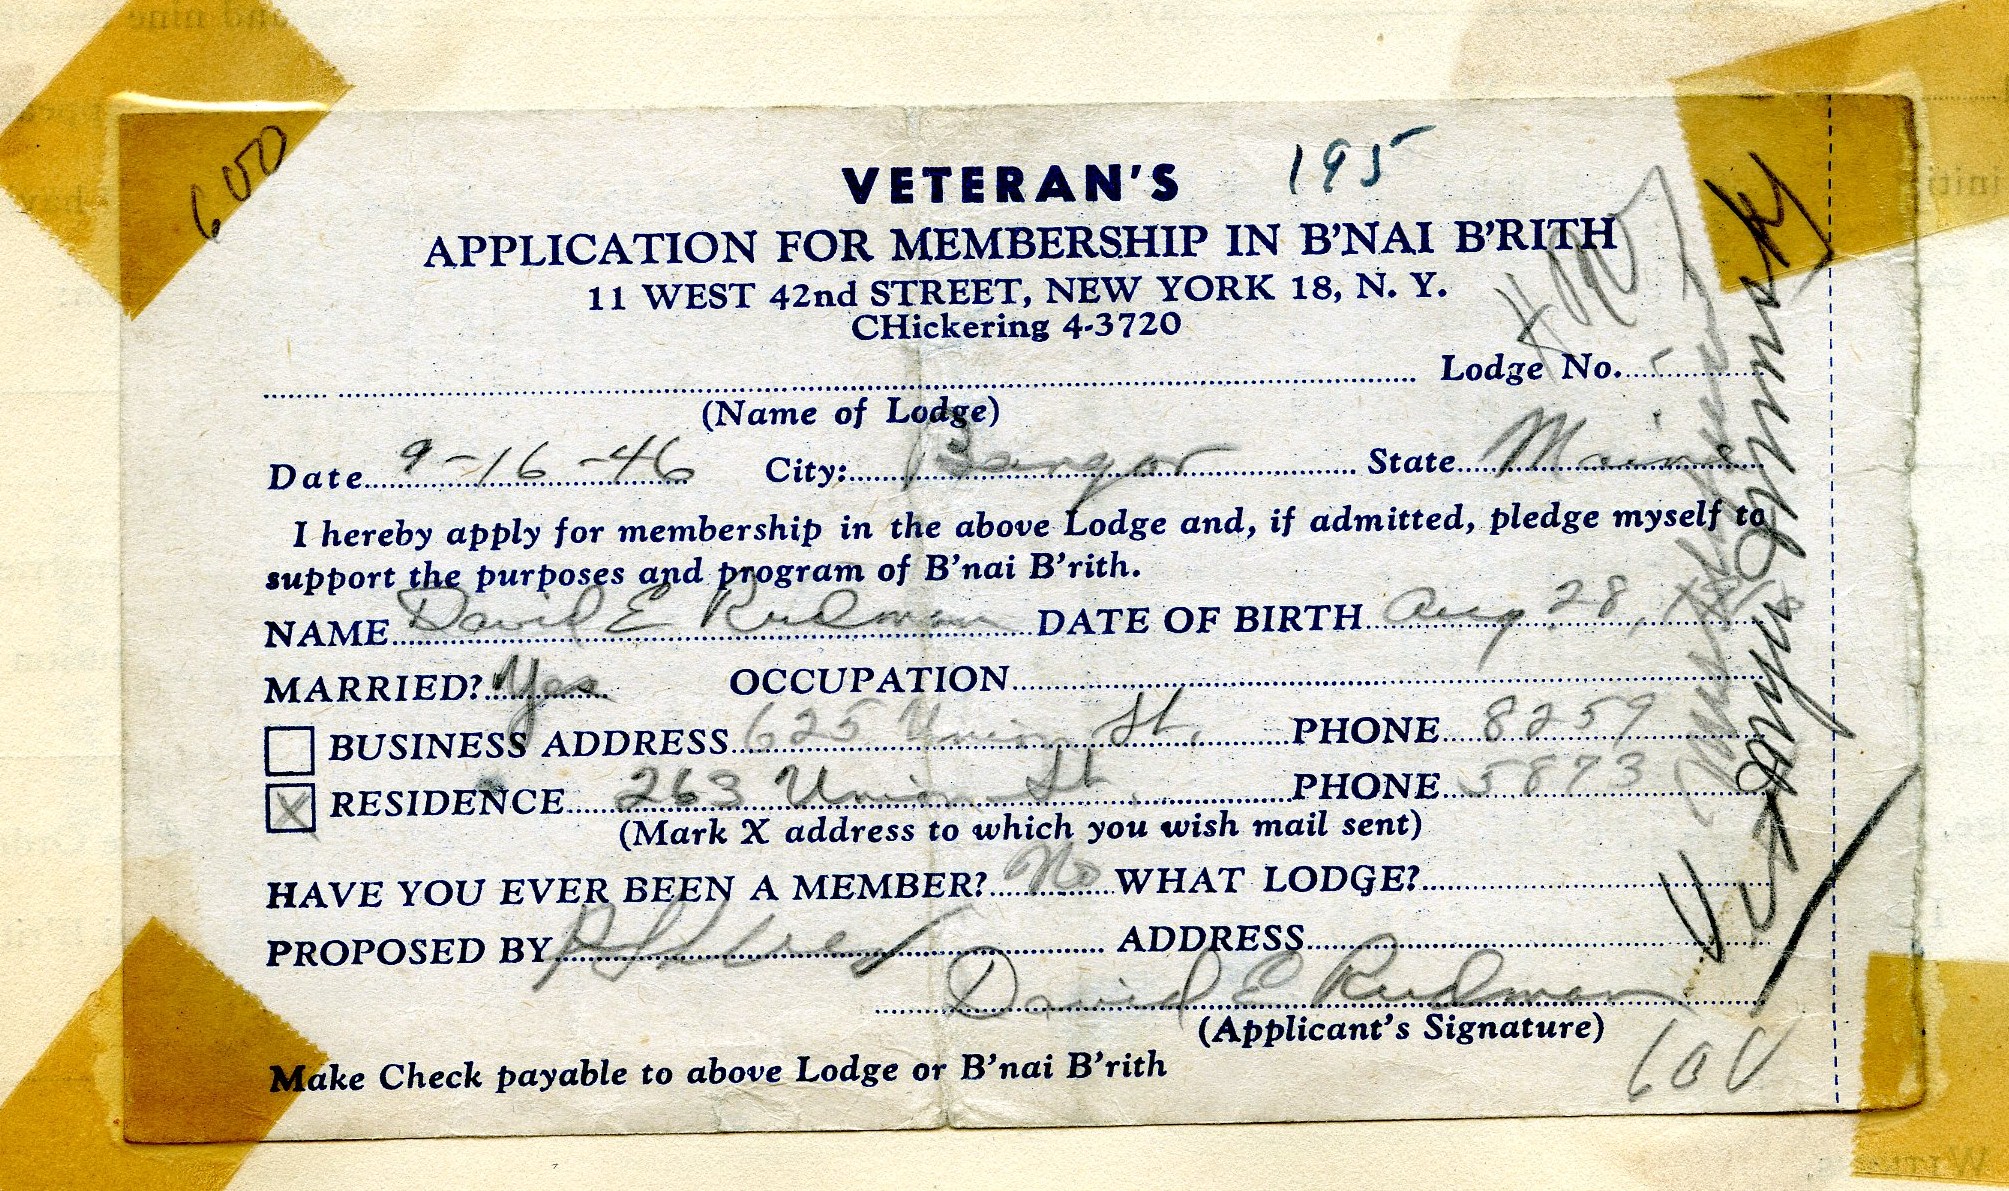 600
VETERAN'S 195
APPLICATION FOR MEMBERSHIP IN B'NAI B'RITH
11 WEST 42nd STREET, NEW YORK 18, N. Y.
CHickering 4-3720
Lodge No.
(Name of Lodge)
Date 9-16-46 City: Bangor State Maine
I hereby apply for membership in the above Lodge and, if admitted, pledge myself to
support the purposes and program of B'nai B'rith.
NAME David E Rudman DATE OF BIRTH Aug. 28,
MARRIED? Yes OCCUPATION
BUSINESS ADDRESS 625 Union St. PHONE 8259
X RESIDENCE 263 Union St. PHONE 5873
(Mark X address to which you wish mail sent)
HAVE YOU EVER BEEN A MEMBER? No WHAT LODGE?
PROPOSED BY ADDRESS
David E Rudman
(Applicant's Signature)
Make Check payable to above Lodge or B'nai B'rith